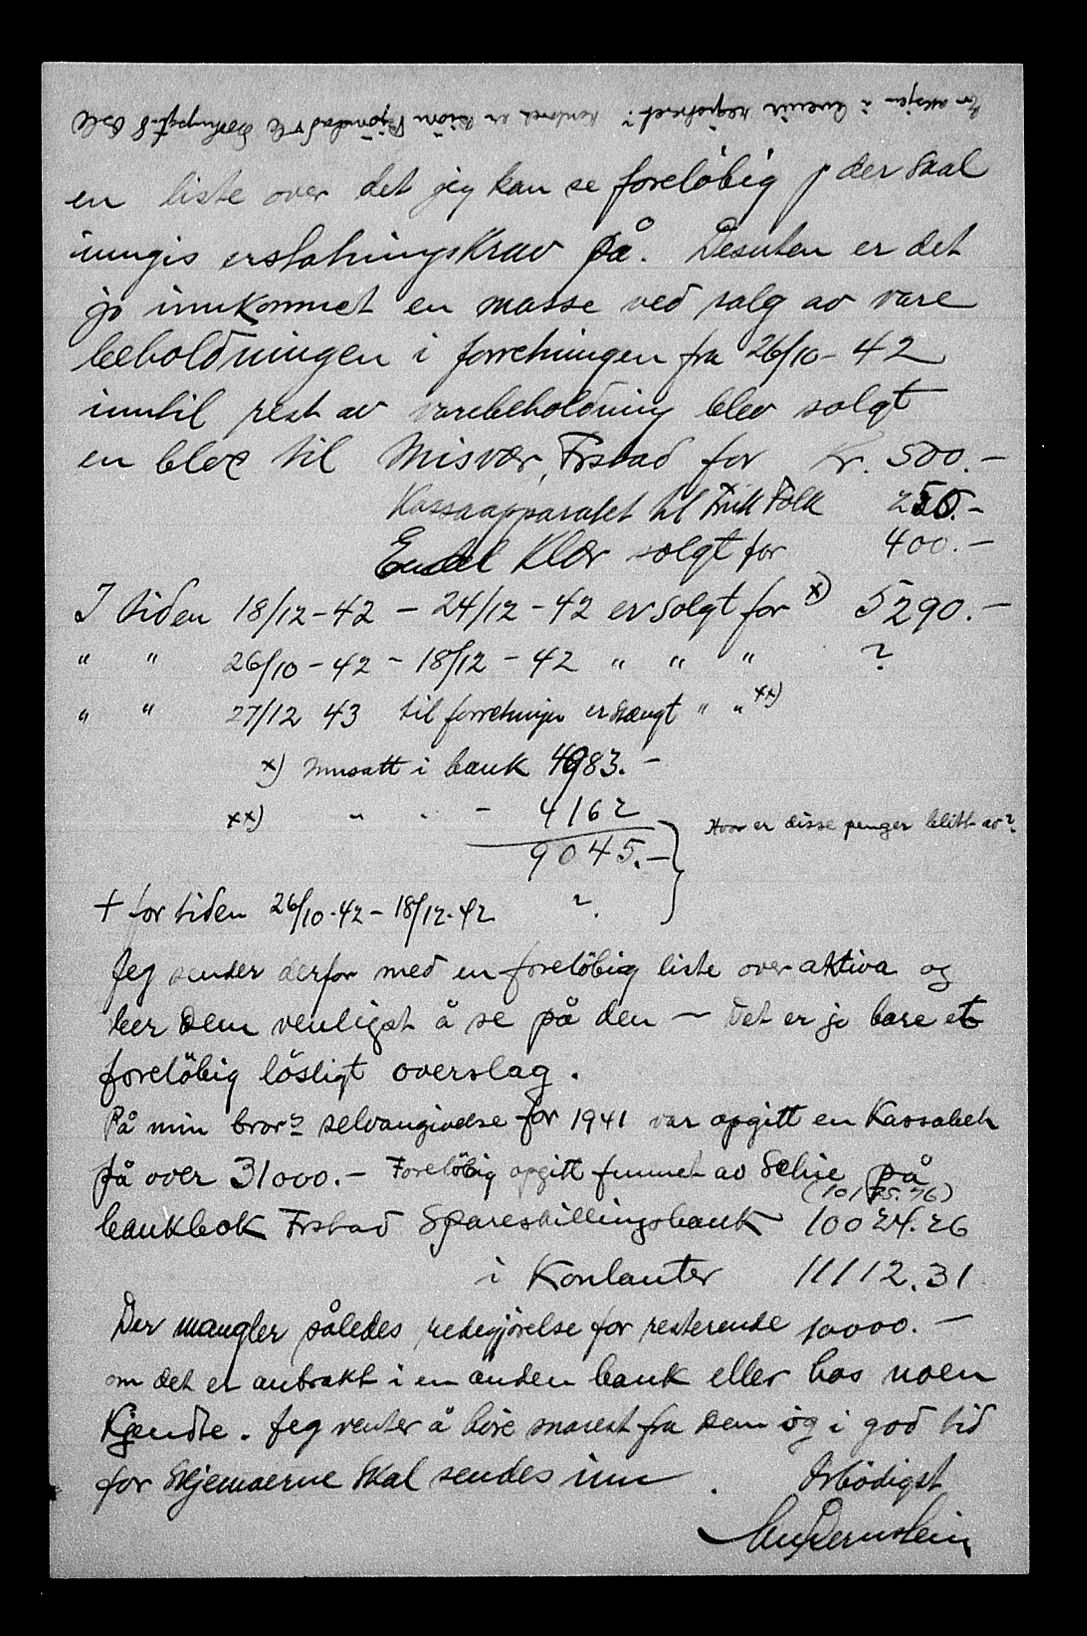 Er aksjen i Avenir registrert? kontoret er Bjørnstad
en liste over det jeg kan se foreløbig / der skal
inngis erstatningskrav på. Desuten er det
jo innkommet en masse ved salg av vare
beholdningen i forretningen fra 26/10 - 42
inntil rest av varebeholdning blev solgt
en bloc til Misvær, Frstad for kr. 500.-
Kassaapparatet til Erik Folk 250.-
Endel Klær solgt for 400.-
I tiden 18/12 - 42 - 24/12 - 42 er solgt for x) 5290.-
" " 26/10 - 42 - 18/12 - 42 " " " ?
" " 27/12 43 til forretningen er stængt " " xx)
x) innsatt i bank 4983.-
xx) " " - 4162
9045.-
Hvor er disse penger blitt av?
+ for tiden 26/10-42 - 18/12-42 ?
Jeg sender derfor med en foreløbig liste over aktiva og
ber Dem venligst å se på den - Det er jo bare et
foreløbig løsligt overslag.
På min brors selvangivelse for 1941 var opgitt en Kassabeh
på over 31000.- Foreløbig opgitt funnet av Selvie på
(10175.76)
bankbok Frstad Spareskillingsbank 10024.26
i Kontanter 11112.31
Der mangler således redegjørelse for resterende 10000.-
om det er anbrakt i en anden bank eller hos noen
Kjendte. Jeg venter å høre snarest fra Dem og i god tid
for Skjemaerne skal sendes inn. Ærbødigst